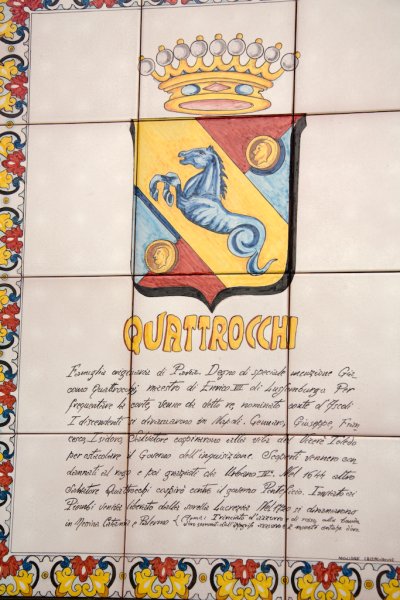 QUATTROCCHI
Famiglia originaria di Pavia. Degno di speciale menzione Gia
como Quattrocchi maestro di Enrico VII di Lussemburgo. Per
frequentare la corte, venne da detto re, nominato conte d'Ascoli
I discendenti si diramarono in Napoli. Gennaro, Giuseppe, Fran
cesco, Isidoro, Salvatore cospirarono alla vita del Vicerè Toledo
per ostacolare il Governo dell'inquisizione. Scoperti vennero con
dannati al rogo e poi graziati da Urbano IV°. Nel 1644 altro
Salvatore Quattrocchi cospirò contro il governo Pontificio.
Piombi venne liberato dalla sorella Lucrezia. Nel 1720 si diramarono
in Messina Catania e Palermo (Arma: Trinciato d'azzurro e di rosso, alla banda